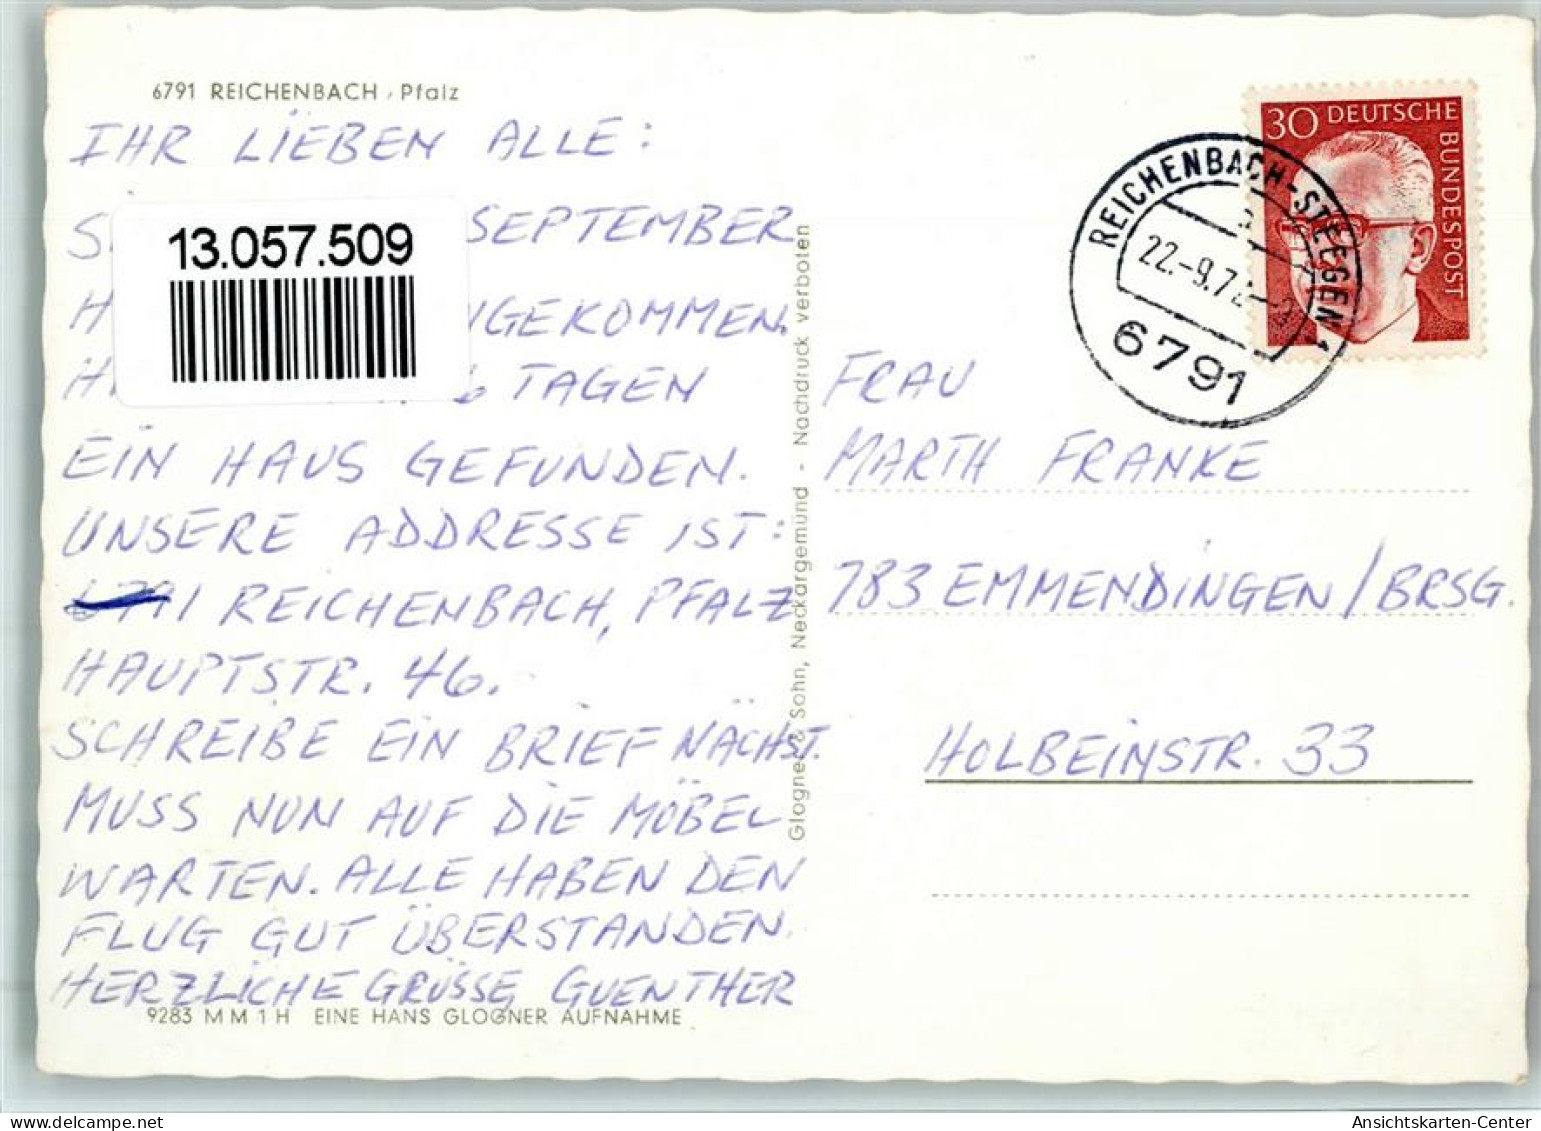 6791 REICHENBACH / Pfalz
IHR LIEBEN ALLE:
SEPTEMBER
13.057.509
NGEKOMMEN.
6 TAGEN
EIN HAUS GEFUNDEN.
UNSERE ADDRESSE IST:
6791 REICHENBACH, PFALZ
HAUPTSTR. 46.
SCHREIBE EIN BRIEF NÄCHST.
MUSS NUN AUF DIE MÖBEL
WARTEN. ALLE HABEN DEN
FLUG GUT ÜBERSTANDEN.
HERZLICHE GRÜSSE, GUENTHER
9283 M M 1 H EINE HANS GLOGNER AUFNAHME
Glogner & Sohn, Neckargemünd - Nachdruck verboten
30 DEUTSCHE
BUNDESPOST
REICHENBACH-STEEGEN 1
a
22.-9.72
6791
FRAU
MARTH FRANKE
783 EMMENDINGEN/BRSG.
HOLBEINSTR. 33
Ansichtskarten-Center